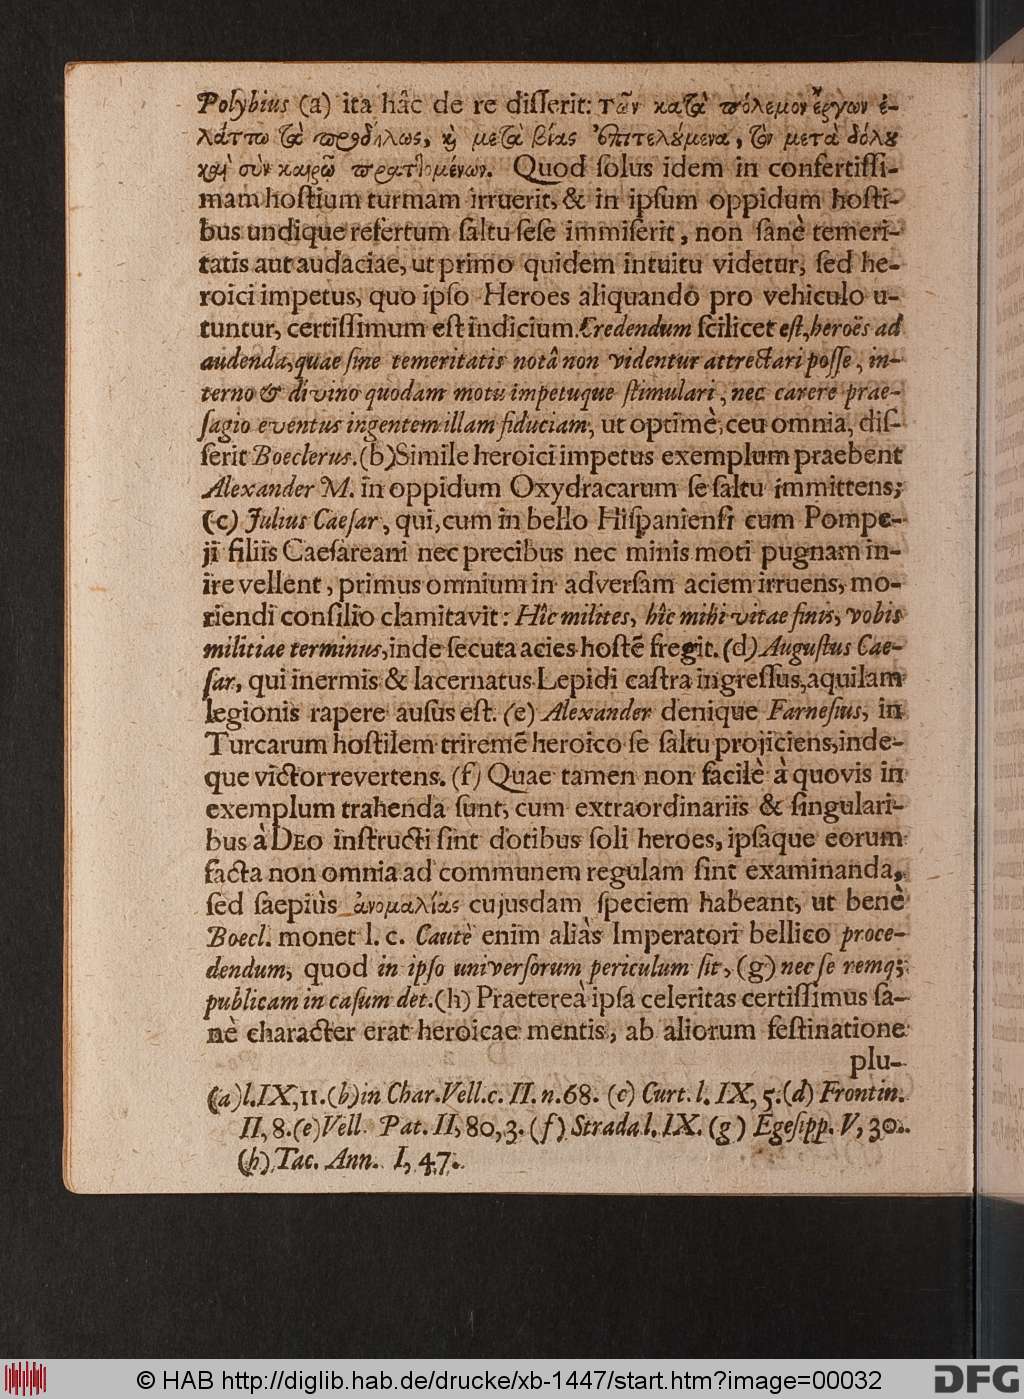 Polybius (a) ita hâc de re disserit: Τῶν κατὰ πόλεμον ἔργων ἐ-
λάττω τὰ προδήλως, καὶ μετὰ βίας ἐπιτελούμενα, τῶν μετὰ δόλου
καὶ σὺν καιρῷ πραττομένων. Quod ſolus idem in confertiſſi-
mam hoſtium turmam irruerit, & in ipſum oppidum hoſti-
bus undique refertum ſaltu ſeſe immiſerit, non ſanè temeri-
tatis aut audaciae, ut primo quidem intuitu videtur, ſed he-
roici impetus, quo ipſo Heroes aliquando pro vehiculo u-
tuntur, certiſſimum eſt indicium. Credendum ſcilicet eſt, heroës ad
audenda, quae ſine temeritatis notâ non videntur attrectari poſſe, in-
terno & divino quodam motu impetuque ſtimulari, nec carere prae-
ſagio eventus ingentem illam fiduciam, ut optimè, ceu omnia, diſ-
ſerit Boeclerus. (b) Simile heroici impetus exemplum praebent
Alexander M. in oppidum Oxydracarum ſe ſaltu immittens;
(c) Julius Caeſar, qui, cum in bello Hiſpanienſi cum Pompe-
ji filiis Caeſareani nec precibus nec minis moti pugnam in-
ire vellent, primus omnium in adverſam aciem irruens, mo-
riendi conſilio clamitavit: Hîc milites, hîc mihi vitae finis, vobis
militiae terminus, inde ſecuta acies hoſtē fregit. (d) Auguſtus Cae-
ſar, qui inermis & lacernatus Lepidi caſtra ingreſſus, aquilam
legionis rapere auſus eſt. (e) Alexander denique Farneſius, in
Turcarum hoſtilem triremē heroico ſe ſaltu projiciens, inde-
que victor revertens. (f) Quae tamen non facilè à quovis in
exemplum trahenda ſunt, cum extraordinariis & ſingulari-
bus à DEO inſtructi ſint dotibus ſoli heroes, ipſaque eorum
facta non omnia ad communem regulam ſint examinanda,
ſed ſaepiùs ἀνομαλίας cujusdam ſpeciem habeant, ut benè
Boecl. monet l. c. Cautè enim aliàs Imperatori bellico proce-
dendum, quod in ipſo univerſorum periculum ſit, (g) nec ſe remq;
publicam in caſum det. (h) Praetereà ipſa celeritas certiſſimus ſa-
nè character erat heroicae mentis, ab aliorum feſtinatione
plu-
(a) l. IX, 11. (b) in Char. Vell. c. II. n. 68. (c) Curt. l. IX, 5. (d) Frontin.
II, 8. (e) Vell. Pat. II, 80, 3. (f) Strada l. IX. (g) Egeſipp. V, 30.
(h) Tac. Ann. I, 47.
© HAB http://diglib.hab.de/drucke/xb-1447/start.htm?image=00032
DFG